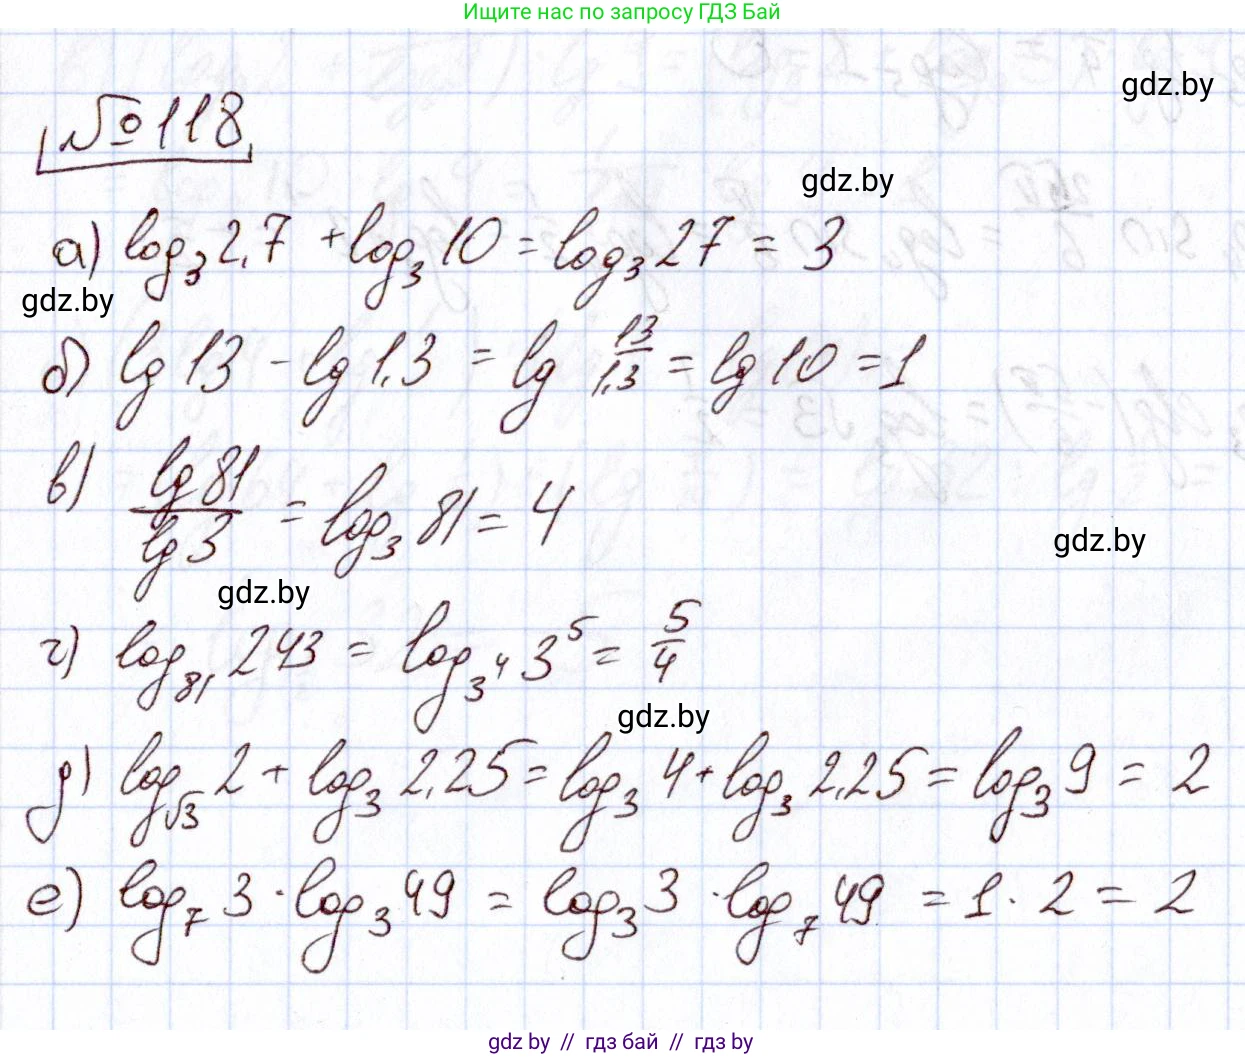 Ищите нас по запросу ГДЗ Бай
gdz.by
№118
gdz.by
а) log₃ 2,7 + log₃ 10 = log₃ 27 = 3
gdz.by
б) lg 13 - lg 1,3 = lg 13/1,3 = lg 10 = 1
в) lg 81/lg 3 = log₃ 81 = 4
gdz.by
gdz.by
г) log₈₁ 243 = log₃⁴ 3⁵ = 5/4
gdz.by
д) log√₃ 2 + log₃ 2,25 = log₃ 4 + log₃ 2,25 = log₃ 9 = 2
е) log₇ 3 · log₃ 49 = log₃ 3 · log₇ 49 = 1 · 2 = 2
gdz by // гдз бай // гдз by